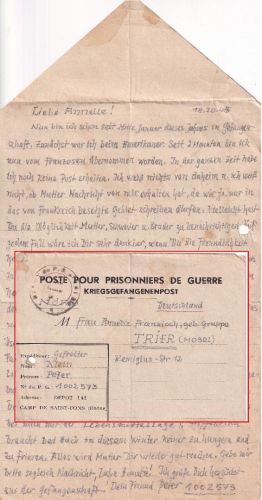 Liebe Annelie! 18.10.45
Nun bin ich schon seit Mitte Januar dieses Jahres in Gefangen-
schaft. Zunächst war ich beim Amerikaner. Seit 2 Monaten bin ich
nun vom Franzosen übernommen worden. In der ganzen Zeit habe
ich noch keine Post erhalten. Ich weiß nichts von daheim u. ich weiß
nicht, ob Mutter Nachricht von mir erhalten hat, da wir ja nur in
das von Frankreich besetzte Gebiet schreiben dürfen. Vielleicht hast
Du die Möglichkeit Mutter, Schwester u. Bruder zu benachrichtigen. Auf
jeden Fall wäre ich Dir sehr dankbar, wenn Du die Freundlichkeit
POSTE POUR PRISONNIERS DE GUERRE
KRIEGSGEFANGENENPOST
Deutschland
M Frau Annelie geb. Gruppe
TRIER (MOSEL)
Remigius-Str 12
Expéditeur: Gefreiter
Nom: Klein
Prénom: Peter
No du P. G.: 1002573
Adresse: DEPOT 141
CAMP DE SAINT-FONS (Rhône)
Lebensmittellage
braucht das Volk in diesem Winter keine zu hungern und
zu frieren. Alles wird Mutter Dir wieder gut machen. Gebe mir
bitte sogleich Nachricht, Liebe Annelie! Ich grüße Dich herzlichst
aus der Gefangenschaft! Dein Freund Peter 1002573